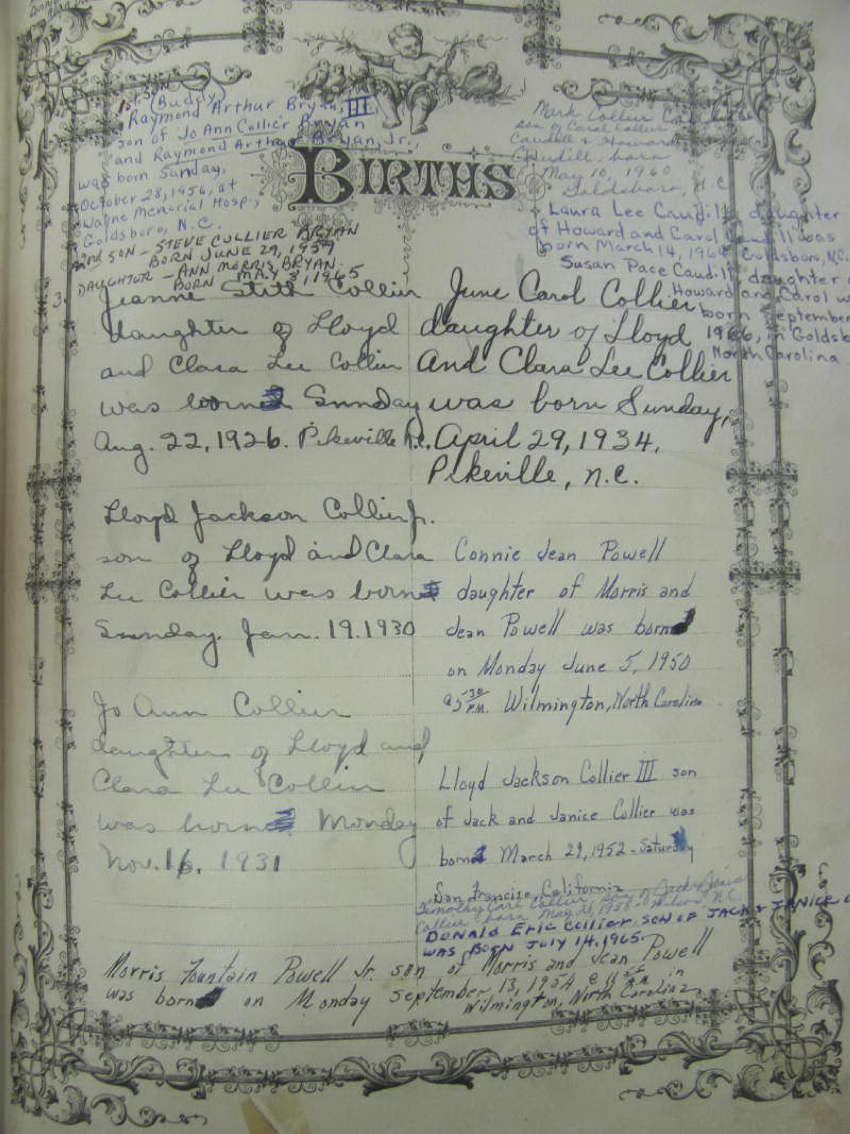 1st son
(Buddy)
Raymond Arthur Bryan, III
son of Jo Ann Collier Bryan
and Raymond Arthur Bryan, Jr.,
was born Sunday,
October 28, 1956, at
Wayne Memorial Hosp.,
Goldsboro, N.C.
2nd SON - STEVE COLLIER BRYAN
BORN JUNE 29, 1959
DAUGHTER - ANN MORRIS BRYAN
BORN MAY 3, 1965
Mark Collier
son of Carol Collier
Caudill & Howard
Caudill, born
May 10, 1960
Goldsboro, N.C.
Laura Lee Caudill daughter
of Howard and Carol Caudill was
born March 14, Goldsboro, N.C.
Susan Pace Caudill daughter
Howard and Carol
born September
1966, in
North Carolina
BIRTHS
Jeanne Stith Collier
daughter of Lloyd
and Clara Lee Collier
was born Sunday
Aug. 22, 1926. Pikeville N.C.
Lloyd Jackson Collier Jr.
son of Lloyd and Clara
Lee Collier was born
Sunday, Jan. 19, 1930
Jo Ann Collier
daughter of Lloyd and
Clara Lee Collier
was born Monday
Nov. 16, 1931
June Carol Collier
daughter of Lloyd
And Clara Lee Collier
was born Sunday,
April 29, 1934,
Pikeville, N.C.
Connie Jean Powell
daughter of Morris and
Jean Powell was born
on Monday June 5, 1950
P.M. Wilmington, North Carolina
Lloyd Jackson Collier III son
of Jack and Janice Collier was
born March 29, 1952 - Saturday
San Francisco, California
Timothy Earl Collier son of Jack & Janice
Collier born May N.C.
DONALD ERIC COLLIER SON OF JACK & JANICE
WAS BORN JULY 14, 1965.
Morris Fountain Powell Jr. son of Morris and Jean Powell
was born on Monday September 13, 1954 in
Wilmington, North Carolina